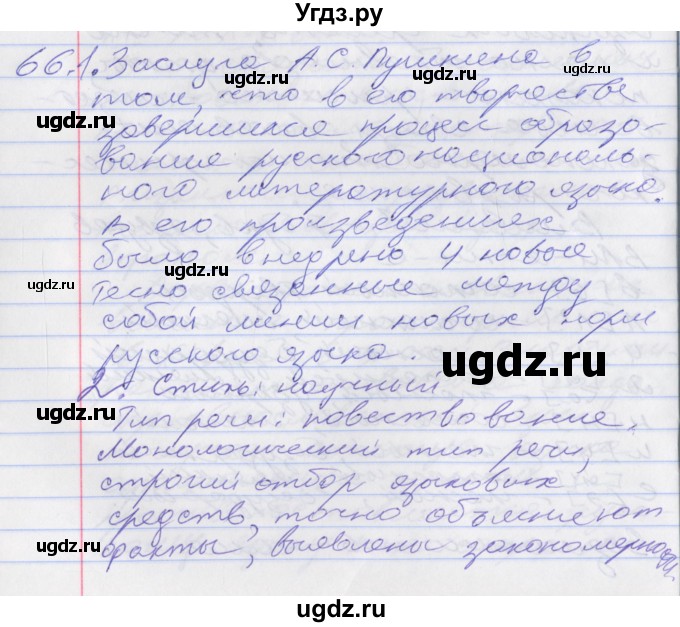 Угдз.ру
66.1. Заслуга А.С. Пушкина в
том, что в его творчестве
завершился процесс образо-
вания русского националь-
ного литературного языка.
В его произведениях
было внедрено 4 новые
тесно связанные между
собой линии новых норм
русского языка.
2. Стиль: научный.
Тип речи: повествование.
Монологический тип речи,
строгий отбор языковых
средств, точно объясняют
факты, выявлены закономерности.
ugdz.ru
ugdz.ru
ugdz.ru
ugdz.ru
ugdz.ru
ugdz.ru
ugdz.ru
ugdz.ru
ugdz.ru
ugdz.ru
ugdz.ru
ugdz.ru